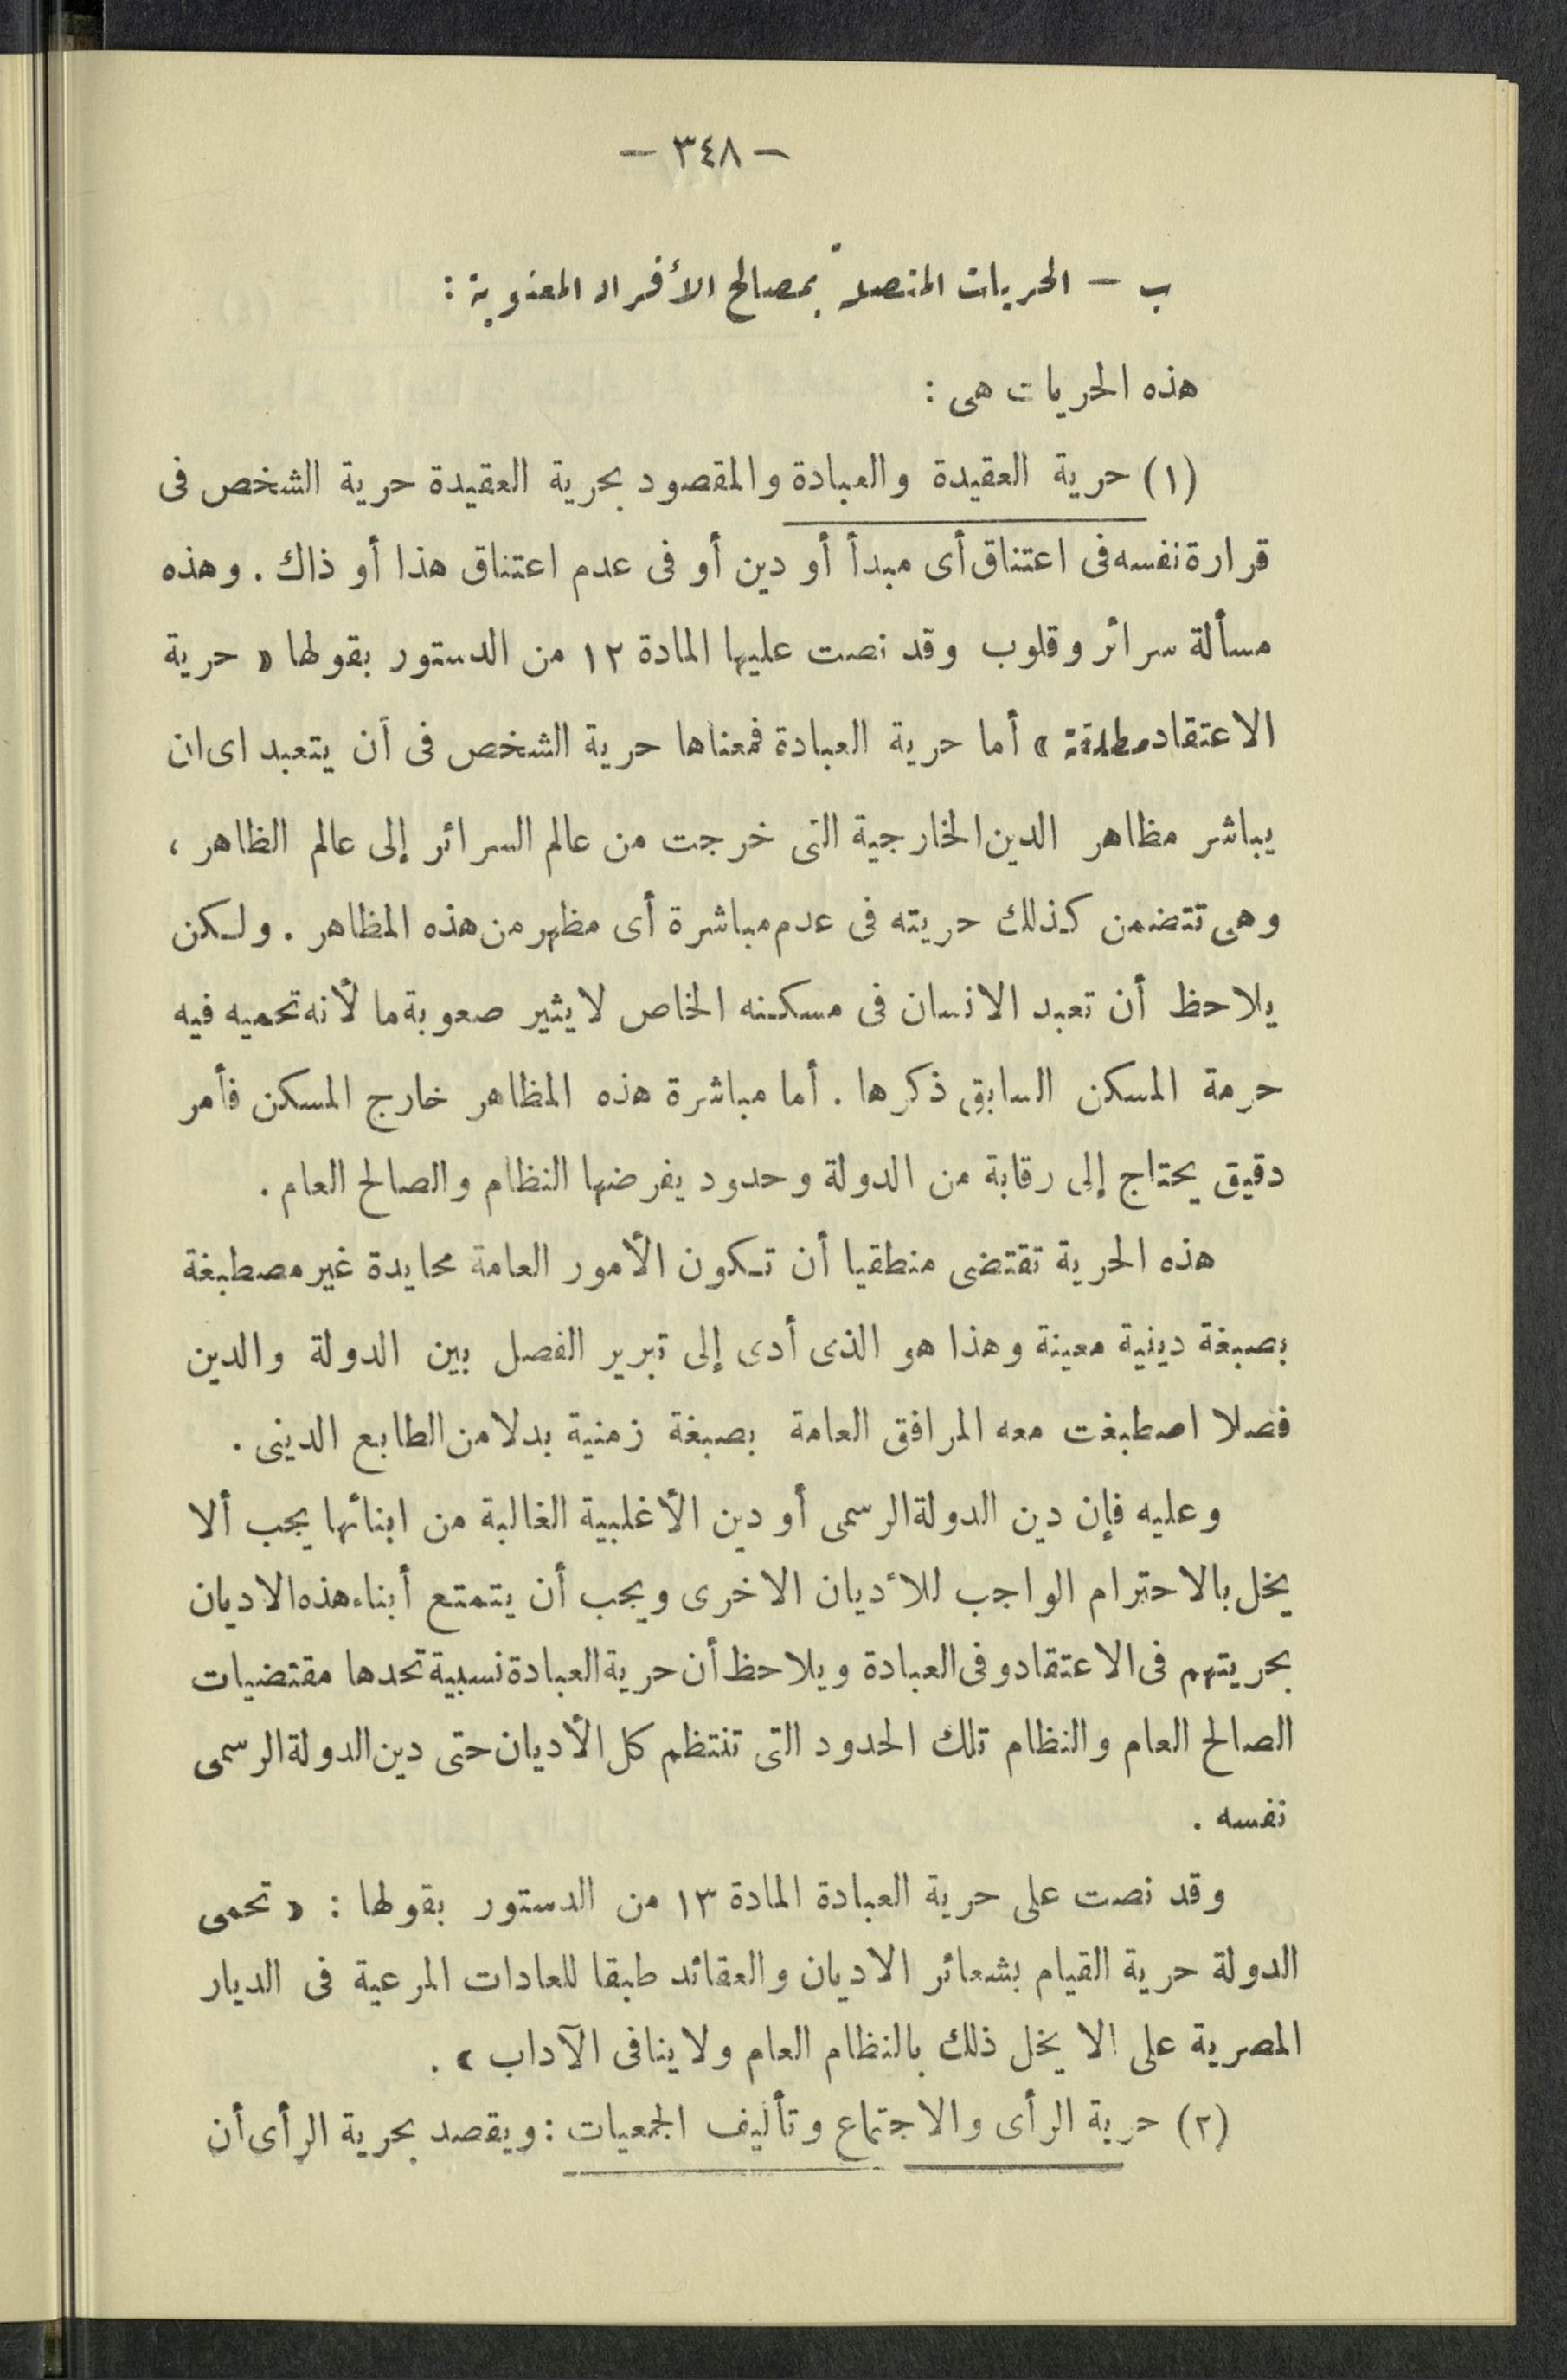 — ٣٤٨ —
ب — الحريات المتصلة بمصالح الأفراد المعنوية :
هذه الحريات هى :
(١) حرية العقيدة والعبادة والمقصود بحرية العقيدة حرية الشخص فى
قرارة نفسه فى اعتناق أى مبدأ أو دين أو فى عدم اعتناق هذا أو ذاك . وهذه
مسألة سرائر وقلوب وقد نصت عليها المادة ١٢ من الدستور بقولها « حرية
الاعتقاد مطلقة » أما حرية العبادة فمعناها حرية الشخص فى أن يتعبد اى ان
يباشر مظاهر الدين الخارجية التى خرجت من عالم السرائر إلى عالم الظاهر ،
وهى تتضمن كذلك حريته فى عدم مباشرة أى مظهر من هذه المظاهر . ولكن
يلاحظ أن تعبد الانسان فى مسكنه الخاص لا يثير صعوبة ما لأنه تحميه فيه
حرمة المسكن السابق ذكرها . أما مباشرة هذه المظاهر خارج المسكن فأمر
دقيق يحتاج إلى رقابة من الدولة وحدود يفرضها النظام والصالح العام .
هذه الحرية تقتضى منطقيا أن تكون الأمور العامة محايدة غير مصطبغة
بصبغة دينية معينة وهذا هو الذى أدى إلى تبرير الفصل بين الدولة والدين
فصلا اصطبغت معه المرافق العامة بصبغة زمنية بدلا من الطابع الدينى .
وعليه فإن دين الدولة الرسمى أو دين الأغلبية الغالبة من ابنائها يجب ألا
يخل بالاحترام الواجب للأديان الاخرى ويجب أن يتمتع أبناء هذه الاديان
بحريتهم فى الاعتقاد وفى العبادة ويلاحظ أن حرية العبادة نسبية تحدها مقتضيات
الصالح العام والنظام تلك الحدود التى تنتظم كل الأديان حتى دين الدولة الرسمى
نفسه .
وقد نصت على حرية العبادة المادة ١٣ من الدستور بقولها : « تحمى
الدولة حرية القيام بشعائر الاديان والعقائد طبقا للعادات المرعية فى الديار
المصرية على الا يخل ذلك بالنظام العام ولا ينافى الآداب » .
(٢) حرية الرأى والاجتماع وتأليف الجمعيات : ويقصد بحرية الرأى أن